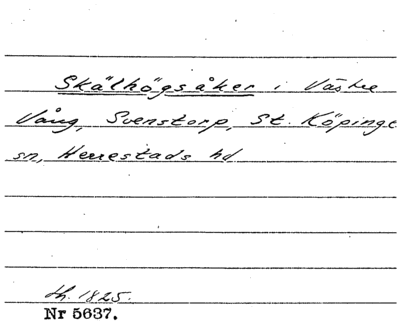 Skälhögsåker i Västre
Vång, Svenstorp, St. Köpinge
sn, Herrestads hd
th. 1825.
Nr 5637.